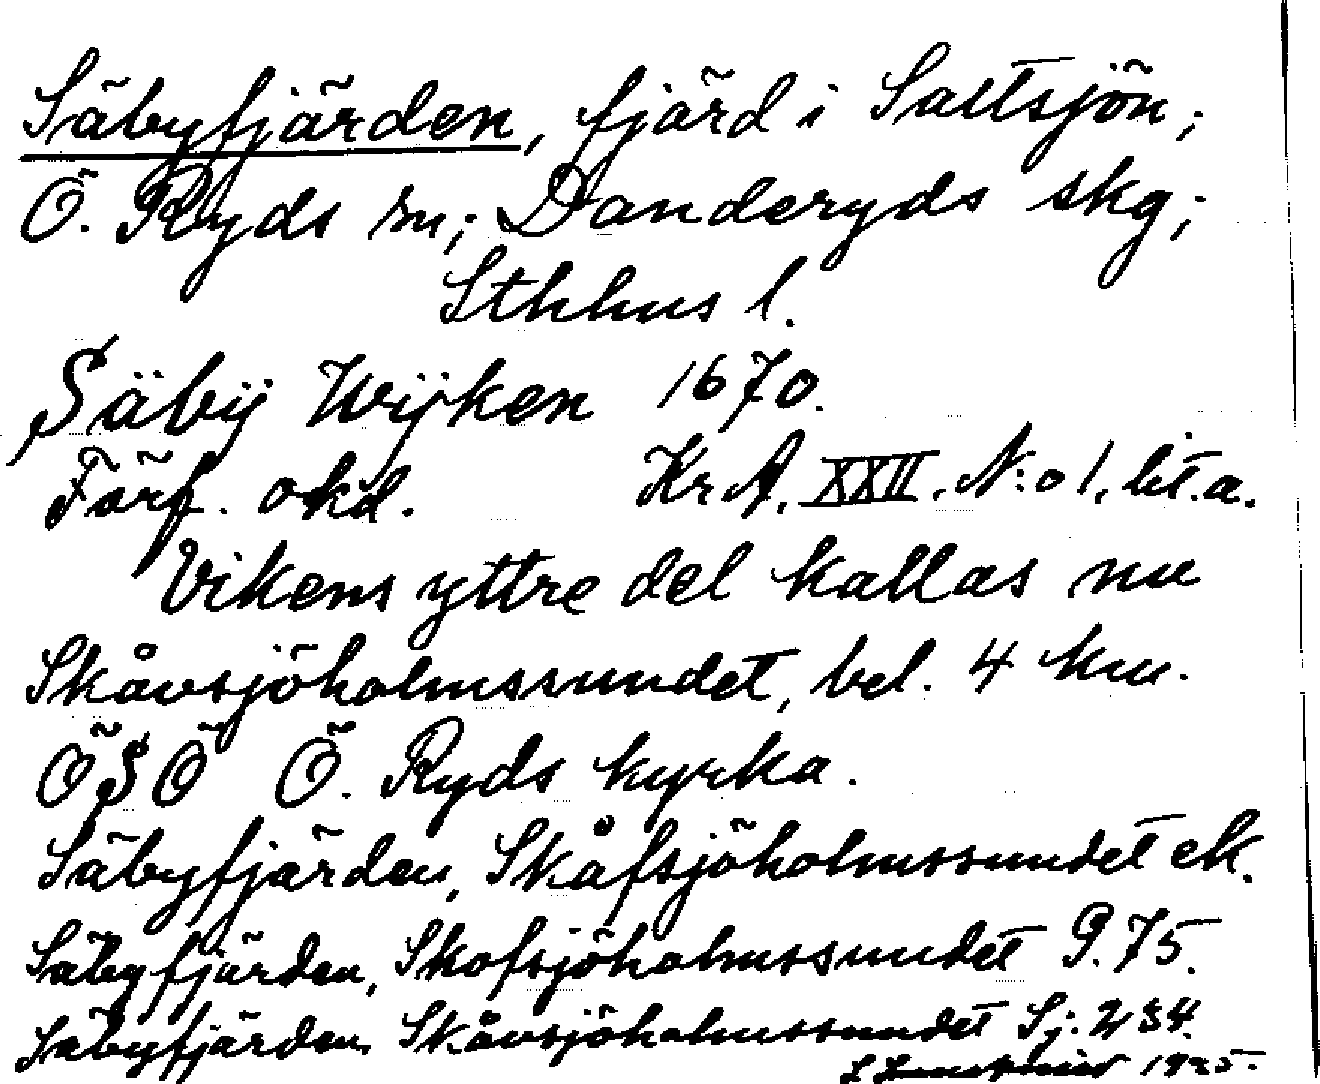 Säbyfjärden, fjärd i Saltsjön;
Ö. Ryds sn; Danderyds skg;
Sthlms l.
Säbij Wijken 1670.
Förf. okd. Kr A, XXII, N:o 1, lit. a.
Vikens yttre del kallas nu
Skåvsjöholmssundet, bel. 4 km.
ÖSÖ Ö. Ryds kyrka.
Säbyfjärden, Skåfsjöholmssundet ek.
Säbyfjärden, Skofsjöholmssundet G. 75.
Säbyfjärden, Skåvsjöholmssundet Sj: 234.
1925.